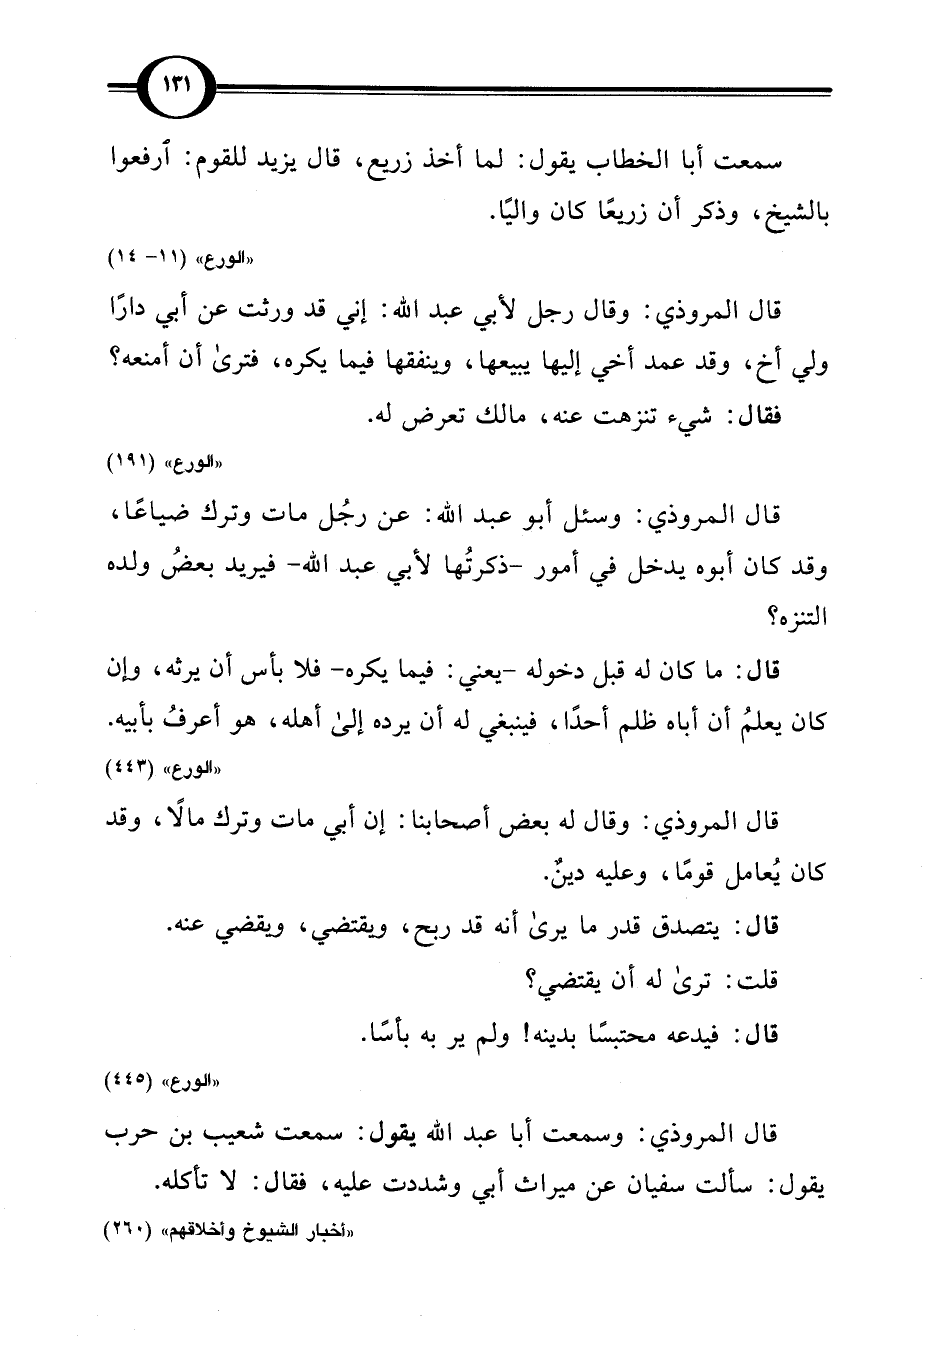 ١٣١
سمعت أبا الخطاب يقول: لما أخذ زريع، قال يزيد للقوم: ٱرفعوا
بالشيخ، وذكر أن زريعًا كان واليًا.
«الورع» (١١- ١٤)
قال المروذي: وقال رجل لأبي عبد الله: إني قد ورثت عن أبي دارًا
ولي أخ، وقد عمد أخي إليها يبيعها، وينفقها فيما يكره، فترىٰ أن أمنعه؟
فقال: شيء تنزهت عنه، مالك تعرض له.
«الورع» (١٩١)
قال المروذي: وسئل أبو عبد الله: عن رجُل مات وترك ضياعًا،
وقد كان أبوه يدخل في أمور -ذكرتُها لأبي عبد الله- فيريد بعضُ ولده
التنزه؟
قال: ما كان له قبل دخوله -يعني: فيما يكره- فلا بأس أن يرثه، وإن
كان يعلمُ أن أباه ظلم أحدًا، فينبغي له أن يرده إلىٰ أهله، هو أعرفُ بأبيه.
«الورع» (٤٤٣)
قال المروذي: وقال له بعض أصحابنا: إن أبي مات وترك مالًا، وقد
كان يُعامل قومًا، وعليه دينٌ.
قال: يتصدق قدر ما يرىٰ أنه قد ربح، ويقتضي، ويقضي عنه.
قلت: ترىٰ له أن يقتضي؟
قال: فيدعه محتبسًا بدينه! ولم ير به بأسًا.
«الورع» (٤٤٥)
قال المروذي: وسمعت أبا عبد الله يقول: سمعت شعيب بن حرب
يقول: سألت سفيان عن ميراث أبي وشددت عليه، فقال: لا تأكله.
«أخبار الشيوخ وأخلاقهم» (٢٦٠)